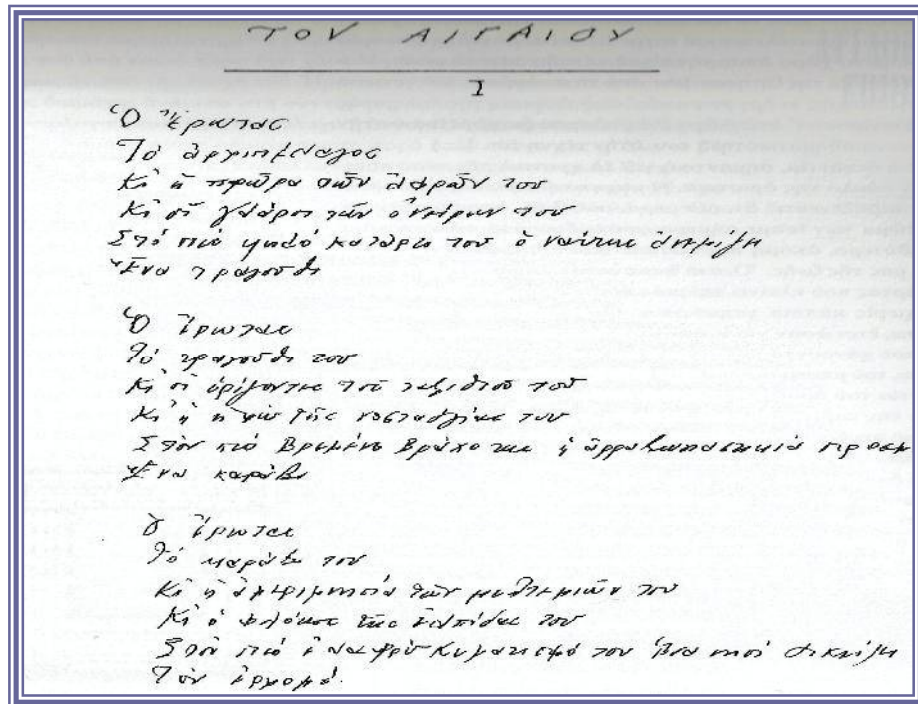 ΤΟΥ ΑΙΓΑΙΟΥ
I
Ὁ Ἔρωτας
Τό ἀρχιπέλαγος
Κι ἡ πρώρα τῶν ἀφρῶν του
Κι οἱ γλάροι τῶν ὀνείρων του
Στό πιό ψηλό κατάρτι του ὁ ναύτης ἀνεμίζει
Ἕνα τραγούδι
Ὁ ἔρωτας
Τό τραγούδι του
Κι οἱ ὁρίζοντες τοῦ ταξιδιοῦ του
Κι ἡ ἠχώ τῆς νοσταλγίας του
Στόν πιό βρεμένο βράχο της ἡ ἀρραβωνιαστικιά προσμ
Ἕνα καράβι
Ὁ ἔρωτας
Τό καράβι του
Κι ἡ ἀμεριμνησία τῶν μελτεμιῶν του
Κι ὁ φλόκος τῆς ἐλπίδας του
Στόν πιό ἐλαφρό κυματισμό του ἕνα νησί λικνίζει
Τόν ἐρχομό.